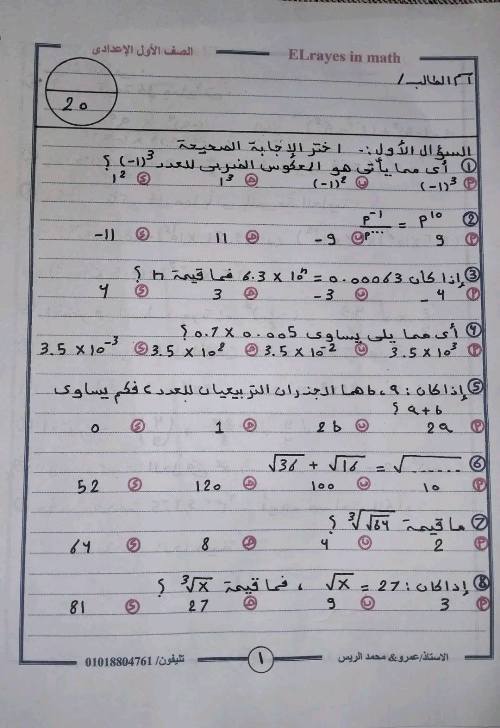 ELrayes in math الصف الأول الإعدادى
اسم الطالب /
20
السؤال الأول :- اختر الإجابة الصحيحة
① أى مما يأتى هو المعكوس الضربى للعدد (-1)³ ؟
أ (-1)³ ب (-1)² ج 1³ د 1²
② P⁻¹/P^.... = P¹⁰
أ 9 ب -9 ج 11 د -11
③ إذا كان 6.3 × 10ⁿ = 0.00063 فما قيمة n ؟
أ -4 ب -3 ج 3 د 4
④ أى مما يلى يساوى 0.7 × 0.005 ؟
أ 3.5 × 10³ ب 3.5 × 10⁻² ج 3.5 × 10² د 3.5 × 10⁻³
⑤ إذا كان : a ، b هما الجذران التربيعيان للعدد c فكم يساوى
a + b ؟
أ 2a ب 2b ج 1 د 0
⑥ √36 + √16 = √.......
أ 10 ب 100 ج 120 د 52
⑦ ما قيمة ∛√64 ؟
أ 2 ب 4 ج 8 د 64
⑧ إذا كان : √x = 27 ، فما قيمة ∛x ؟
أ 3 ب 9 ج 27 د 81
الاستاذ/عمرو & محمد الريس ١ تليفون/ 01018804761